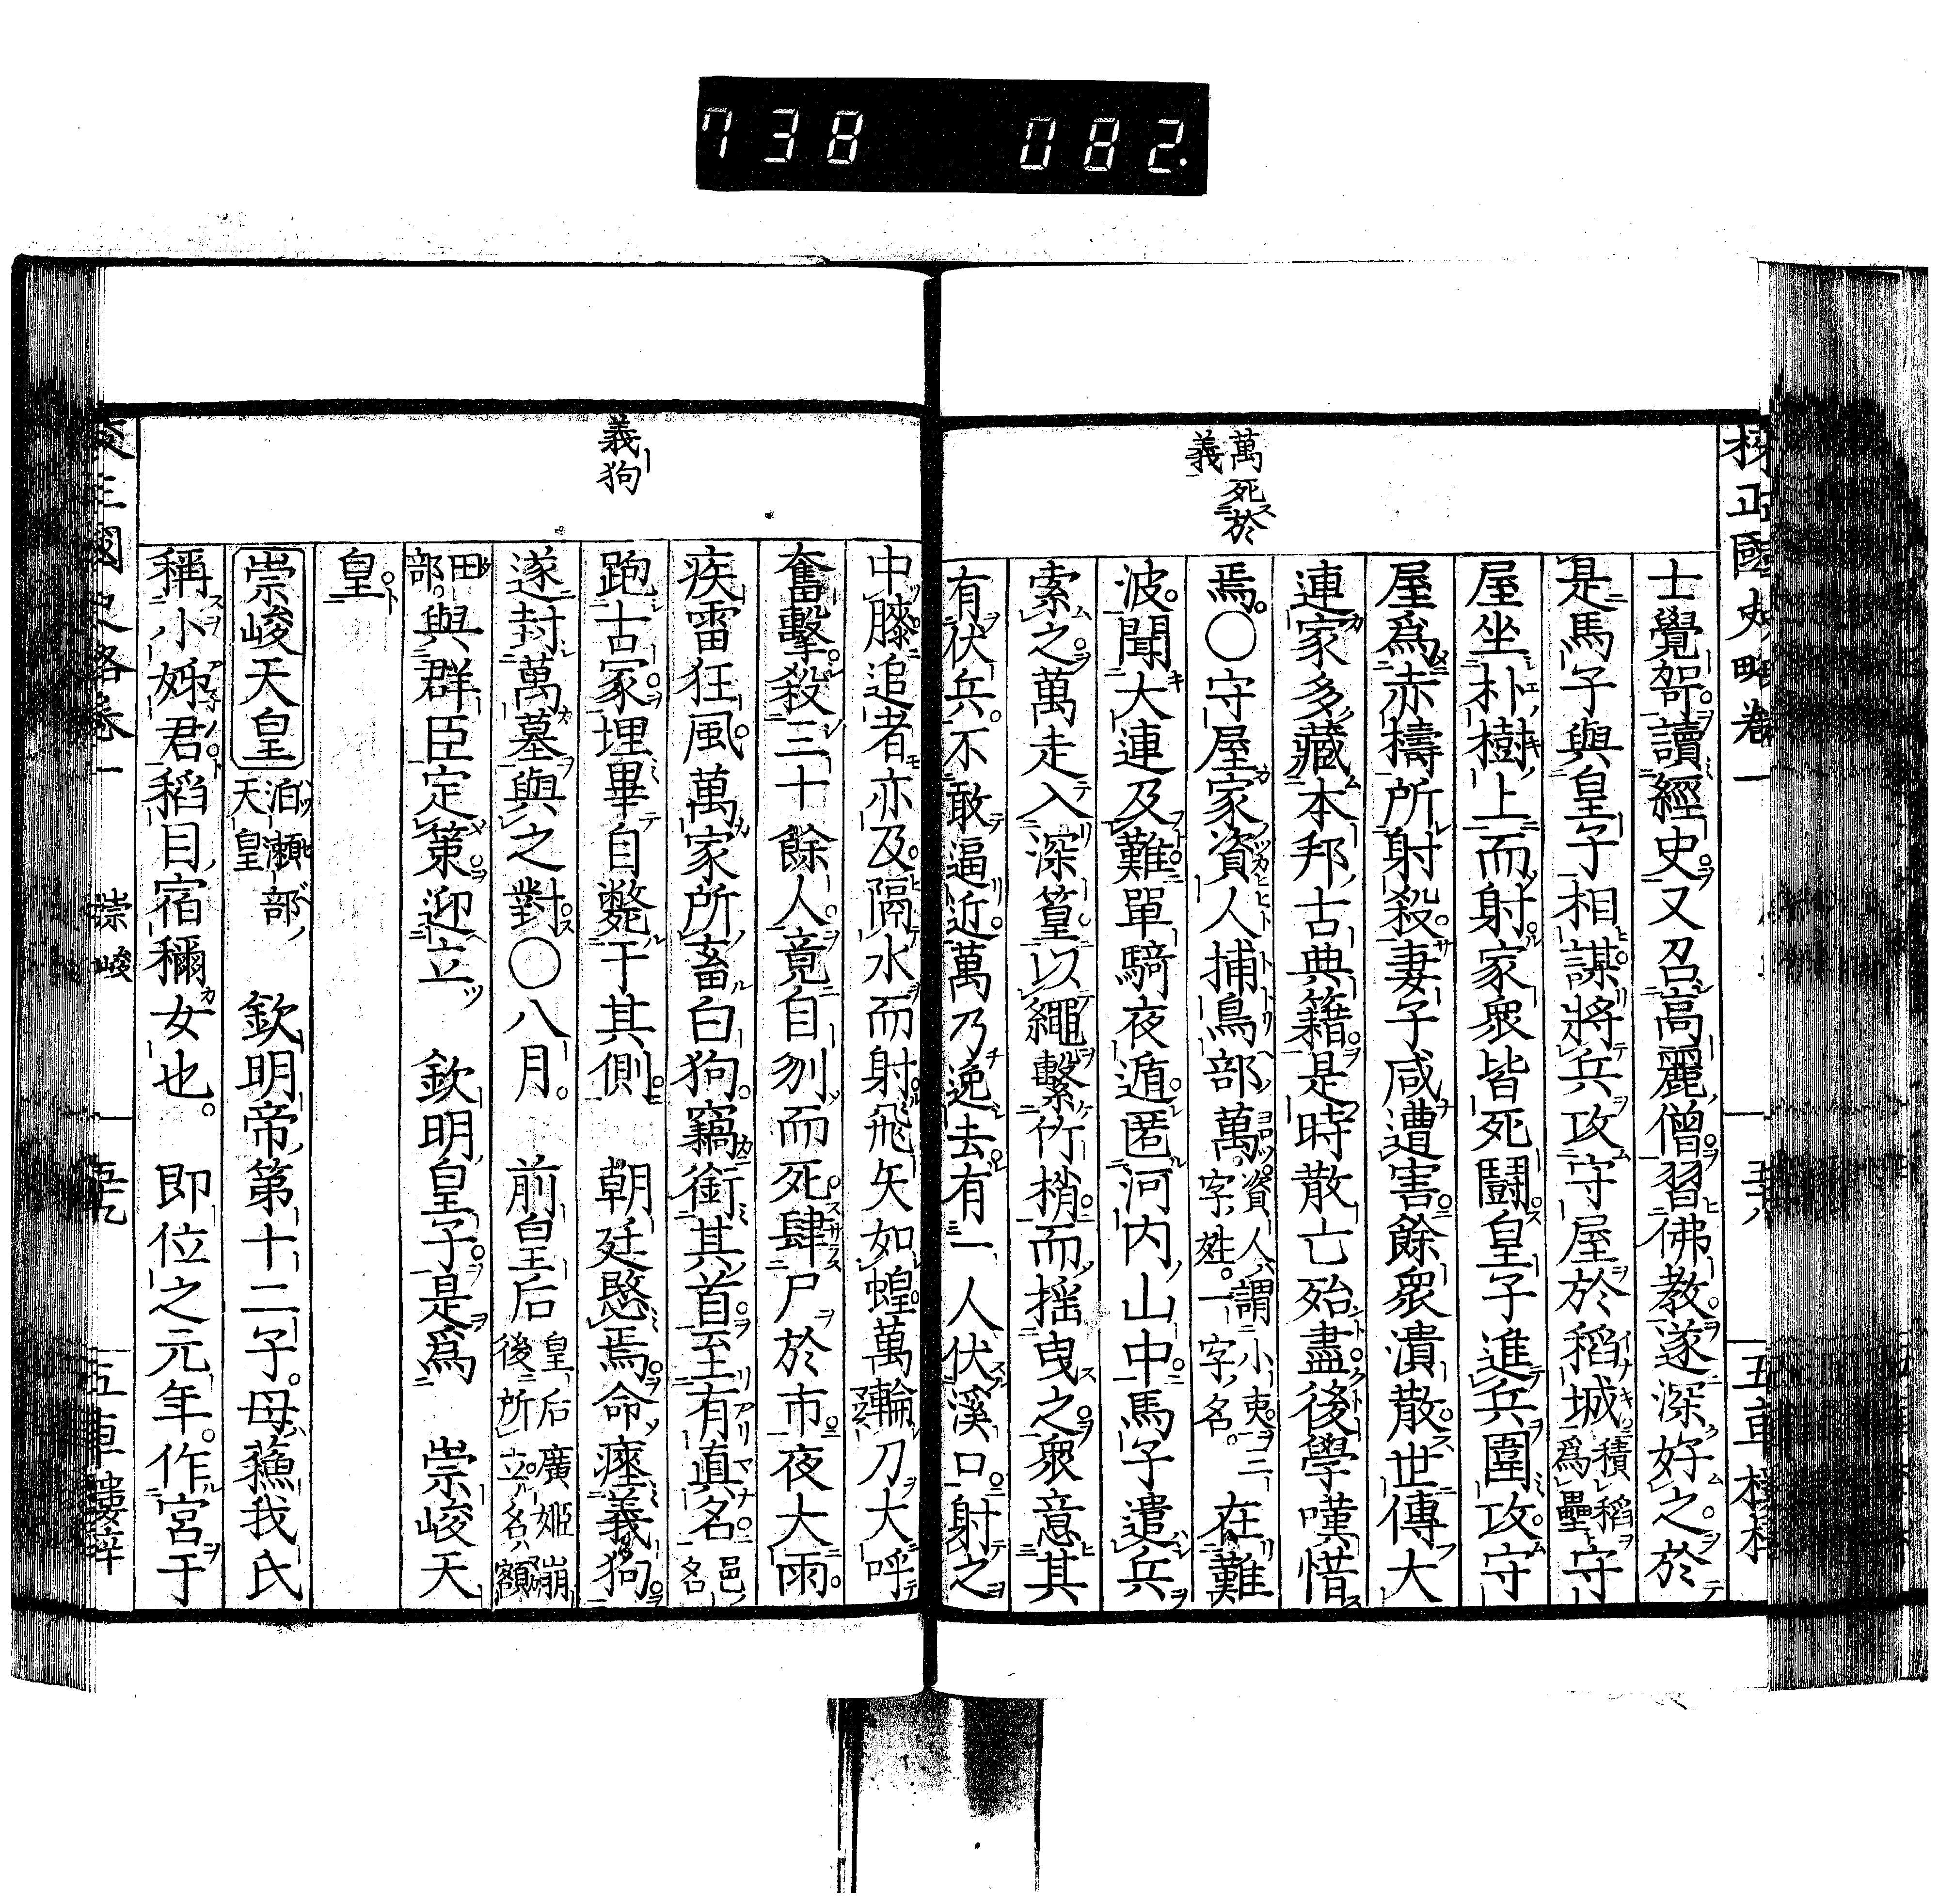 738 082.
校正國史略卷一
五車樓梓
萬死於
義
士覺哿讀經史又召高麗僧習佛教遂深好之於
是馬子與皇子相謀將兵攻守屋於稻城積稻爲壘守
屋坐朴樹上而射家衆皆死鬪皇子進兵圍攻守
屋爲赤檮所射殺妻子咸遭害餘衆潰散世傳大
連家多藏本邦古典籍是時散亡殆盡後學嘆惜
焉○守屋家資人捕鳥部萬資人謂小吏二字姓一字名在難
波聞大連及難單騎夜遁匿河内山中馬子遣兵
索之萬走入深篁以繩繫竹梢而揺曳之衆意其
有伏兵不敢逼近萬乃逸去有一人伏溪口射之
義狗
中膝追者亦及隔水而射飛矢如蝗萬輪刀大呼
奮擊殺三十餘人竟自刎而死肆尸於市夜大雨
疾雷狂風萬家所畜白狗竊銜其首至有真名邑名
跑古冢埋畢自斃于其側　朝廷愍焉命瘞義狗
遂封萬墓與之對○八月　前皇后皇后廣姬崩後所立名額
田部與群臣定策迎立　欽明皇子是爲　崇峻天
皇
崇峻天皇泊瀬部天皇　欽明帝第十二子母蘓我氏
稱小姊君稻目宿禰女也　即位之元年作宮于
崇峻